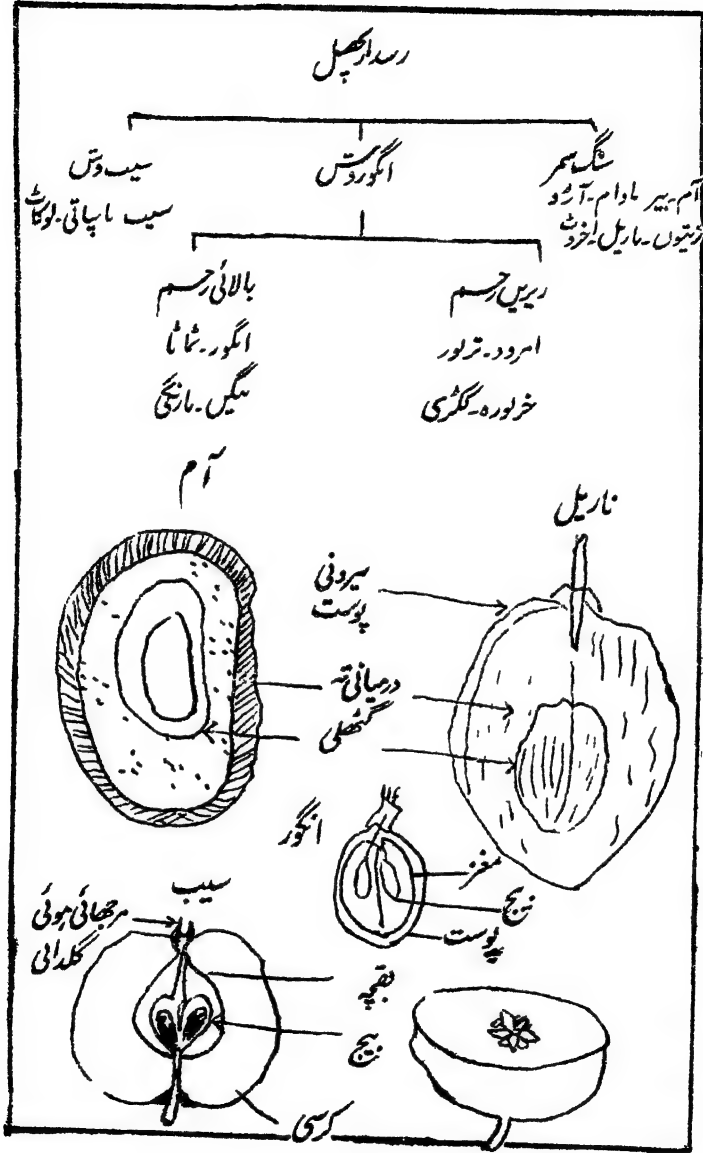 رسدار پھل
سنگ سمر
آم۔بیر بادام۔آڑو
زیتون۔ناریل۔اخروٹ
انگوروش
سیب وش
سیب ناپاتی۔لوکاٹ
زیریں رحم
امرود۔تربوز
خربوزہ۔ککڑی
بالائی رحم
انگور۔ٹماٹا
بیگن۔نارنگی
آم
ناریل
بیرونی
پوست
درمیانی تہ
گٹھلی
انگور
مغز
بیج
پوست
سیب
مرجھائی ہوئی
گلدانی
بقچہ
بیج
کرسی